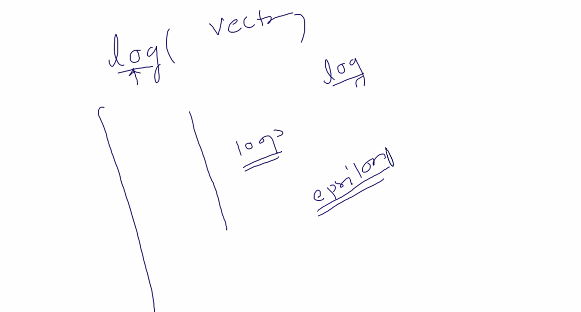 log( vector)
log
log
epsilon